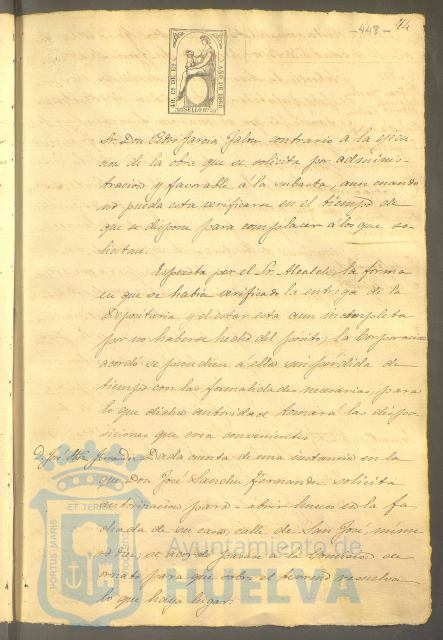 -448- 74
40. CS. DE. ES. AÑO DE 1868
SELLO 9º
Sr. Don Pedro Garcia Jalon contrario á la ejecu-
cion de la obra que se solicita por adminis-
tracion y favorable á la subasta, aun cuando
no pueda esta verificarse en el tiempo de
que se dispone para complacer á los que so-
licitan.
Espuesta por el Sr. Alcalde, la forma
en que se habia verificado la entrega de la
Depositaria y el estar esta aun incompleta
por no haberse hecho del pósito, la Corporacion
acordó se procediera á ella sin pérdida de
tiempo con las formalidades necesarias, para
lo que dicha autoridad tomará las dispo-
siciones que crea convenientes.
Dada cuenta de una instancia en la
que Don José Sanchez Fernandez solicita
autorizacion para abrir huecos en la fa-
chada de su casa, calle de San José, núme-
ro se acordó pasara á la comision de
ornato para que sobre el terreno resuelva
lo que haya lugar.
PORTUS MARIS ET TERRÆ CUSTODIA
Ayuntamiento de
HUELVA